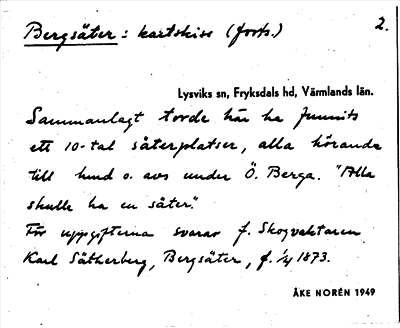 Bergsäter: kartskiss (forts.) 2.
Lysviks sn, Fryksdals hd, Värmlands län.
Sammanlagt torde här ha funnits
ett 10-tal säterplatser, alla hörande
till hmd o. avs under Ö. Berga. "Alla
skulle ha en säter."
För uppgifterna svarar f. Skogvaktaren
Karl Sätherberg, Bergsäter, f. 1/4 1873.
ÅKE NORÉN 1949